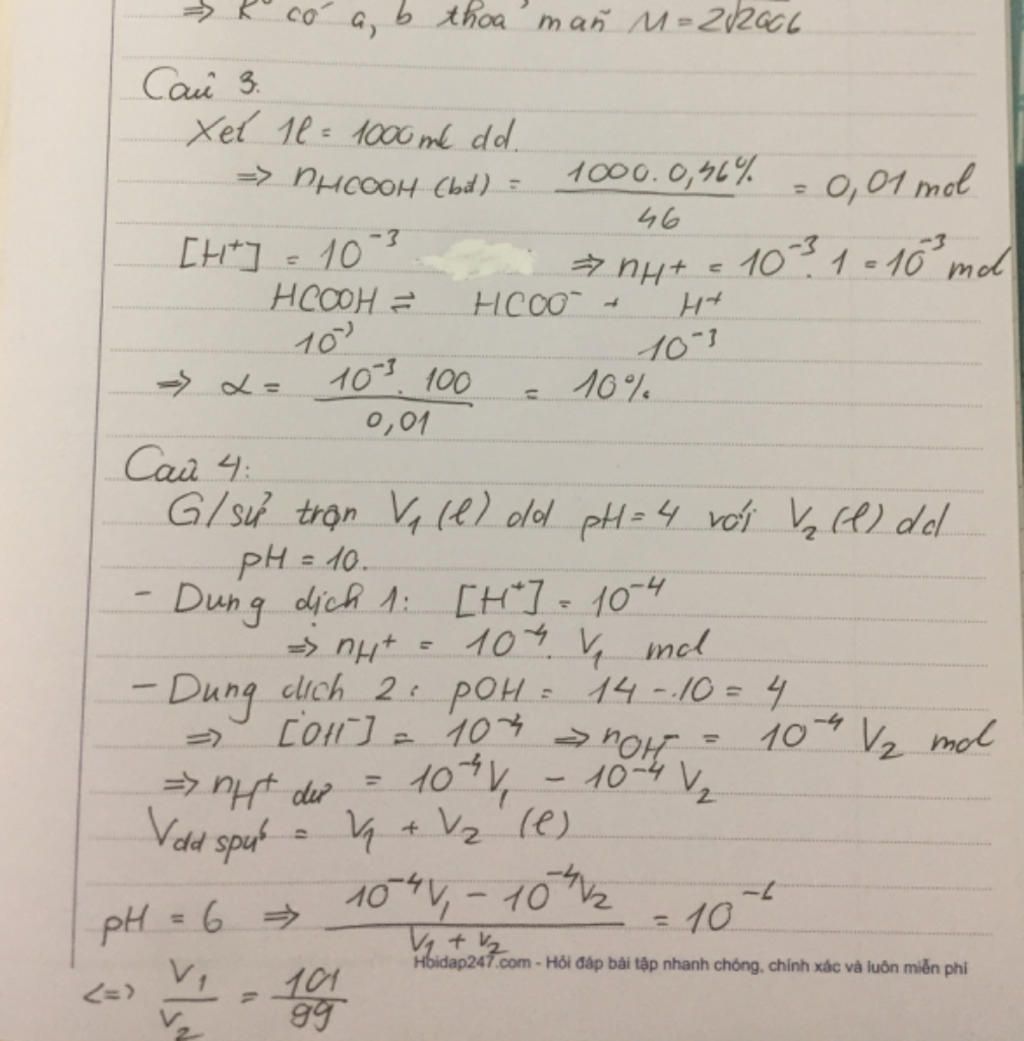 ⇒ K° có a, b thoả mãn M = 2√2006
Câu 3.
Xét 1l = 1000 ml dd.
⇒ nHCOOH (bđ) = 1000. 0,46% / 46 = 0,01 mol
[H⁺] = 10⁻³ ⇒ nH⁺ = 10⁻³. 1 = 10⁻³ mol
HCOOH ⇌ HCOO⁻ + H⁺
10⁻³ 10⁻³
⇒ α = 10⁻³. 100 / 0,01 = 10%.
Câu 4:
G/sử trộn V₁ (l) dd pH = 4 với V₂ (l) dd
pH = 10.
- Dung dịch 1: [H⁺] = 10⁻⁴
⇒ nH⁺ = 10⁻⁴. V₁ mol
- Dung dịch 2: pOH = 14 - 10 = 4
⇒ [OH⁻] = 10⁻⁴ ⇒ nOH⁻ = 10⁻⁴ V₂ mol
⇒ nH⁺ dư = 10⁻⁴V₁ - 10⁻⁴ V₂
Vdd spứ = V₁ + V₂ (l)
pH = 6 ⇒ 10⁻⁴V₁ - 10⁻⁴V₂ / V₁ + V₂ = 10⁻⁶
Hoidap247.com - Hỏi đáp bài tập nhanh chóng, chính xác và luôn miễn phí
<=> V₁ / V₂ = 101 / 99